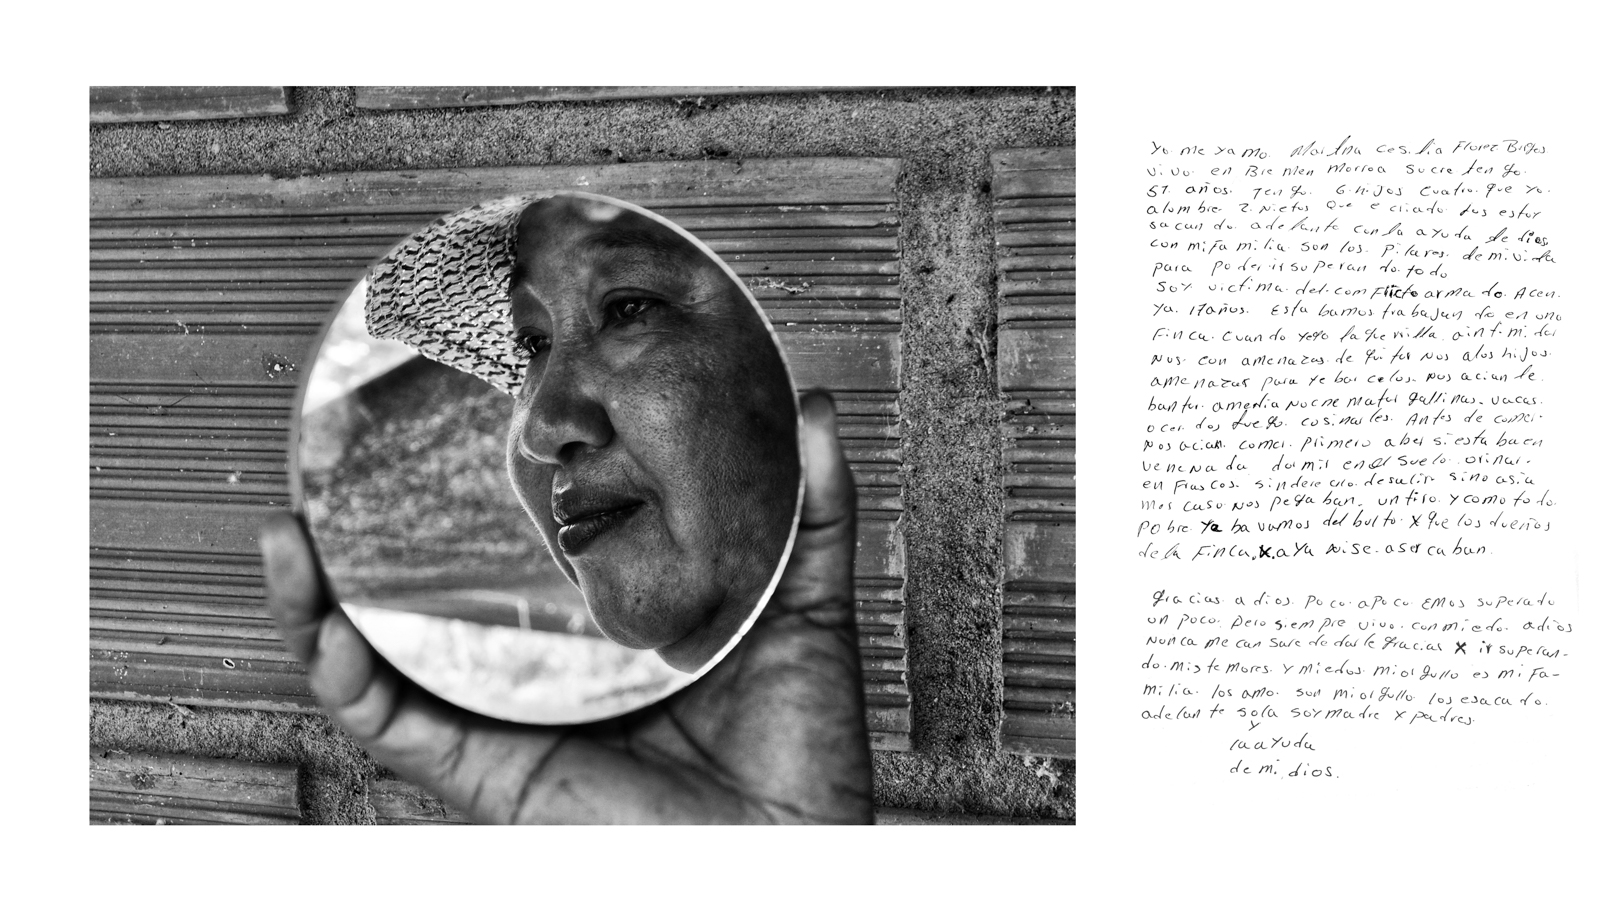 Yo me ya mo. Martha ces.lia Florez
vivo en Bremen Morroa Sucre ten go.
51 años. Ten go. 6 hijos cuatro. que yo.
alombre 2. nietos que e criado los estoy
sacan do. adelante con la ayuda de dios,
con mi fa milia. son los. pilares. de mi vida
para poder ir superan do. todo
soy victima. del. comflicto arma do. Acen.
ya. 17 años. Esta bamos trabajan do en una
finca. cuando yego la guerrilla. aintimidar
nos. con amenazas. de qui tar nos alos hijos.
amenazar para ye bar celos. nos acian le.
bantar. amedia noche matar gallinas. vacas.
ocer. dos fuego. cosinarles. Antes de comer.
nos acian. comer. primero aber si esta baen
venenada dormir en el suelo. orinar.
en frascos. sinderecho. desalir sino asia
mos caso nos pega ban, un tiro. y como todo.
pobre ye ba vamos del bulto. x que los dueños
de la finca, x. aya ni se. aser ca ban.
gracias. a dios. poco. apoco. emos superado
un poco. Pero siempre vivo. con miedo. adios
nunca me can sare de darle gracias x ir superan-
do. mis te mores. y miedos. mi orgullo es mi fa-
milia. los amo. son mi orgullo los esaca do.
adelan te sola soy madre x padres.
y
la ayuda
de mi. dios.